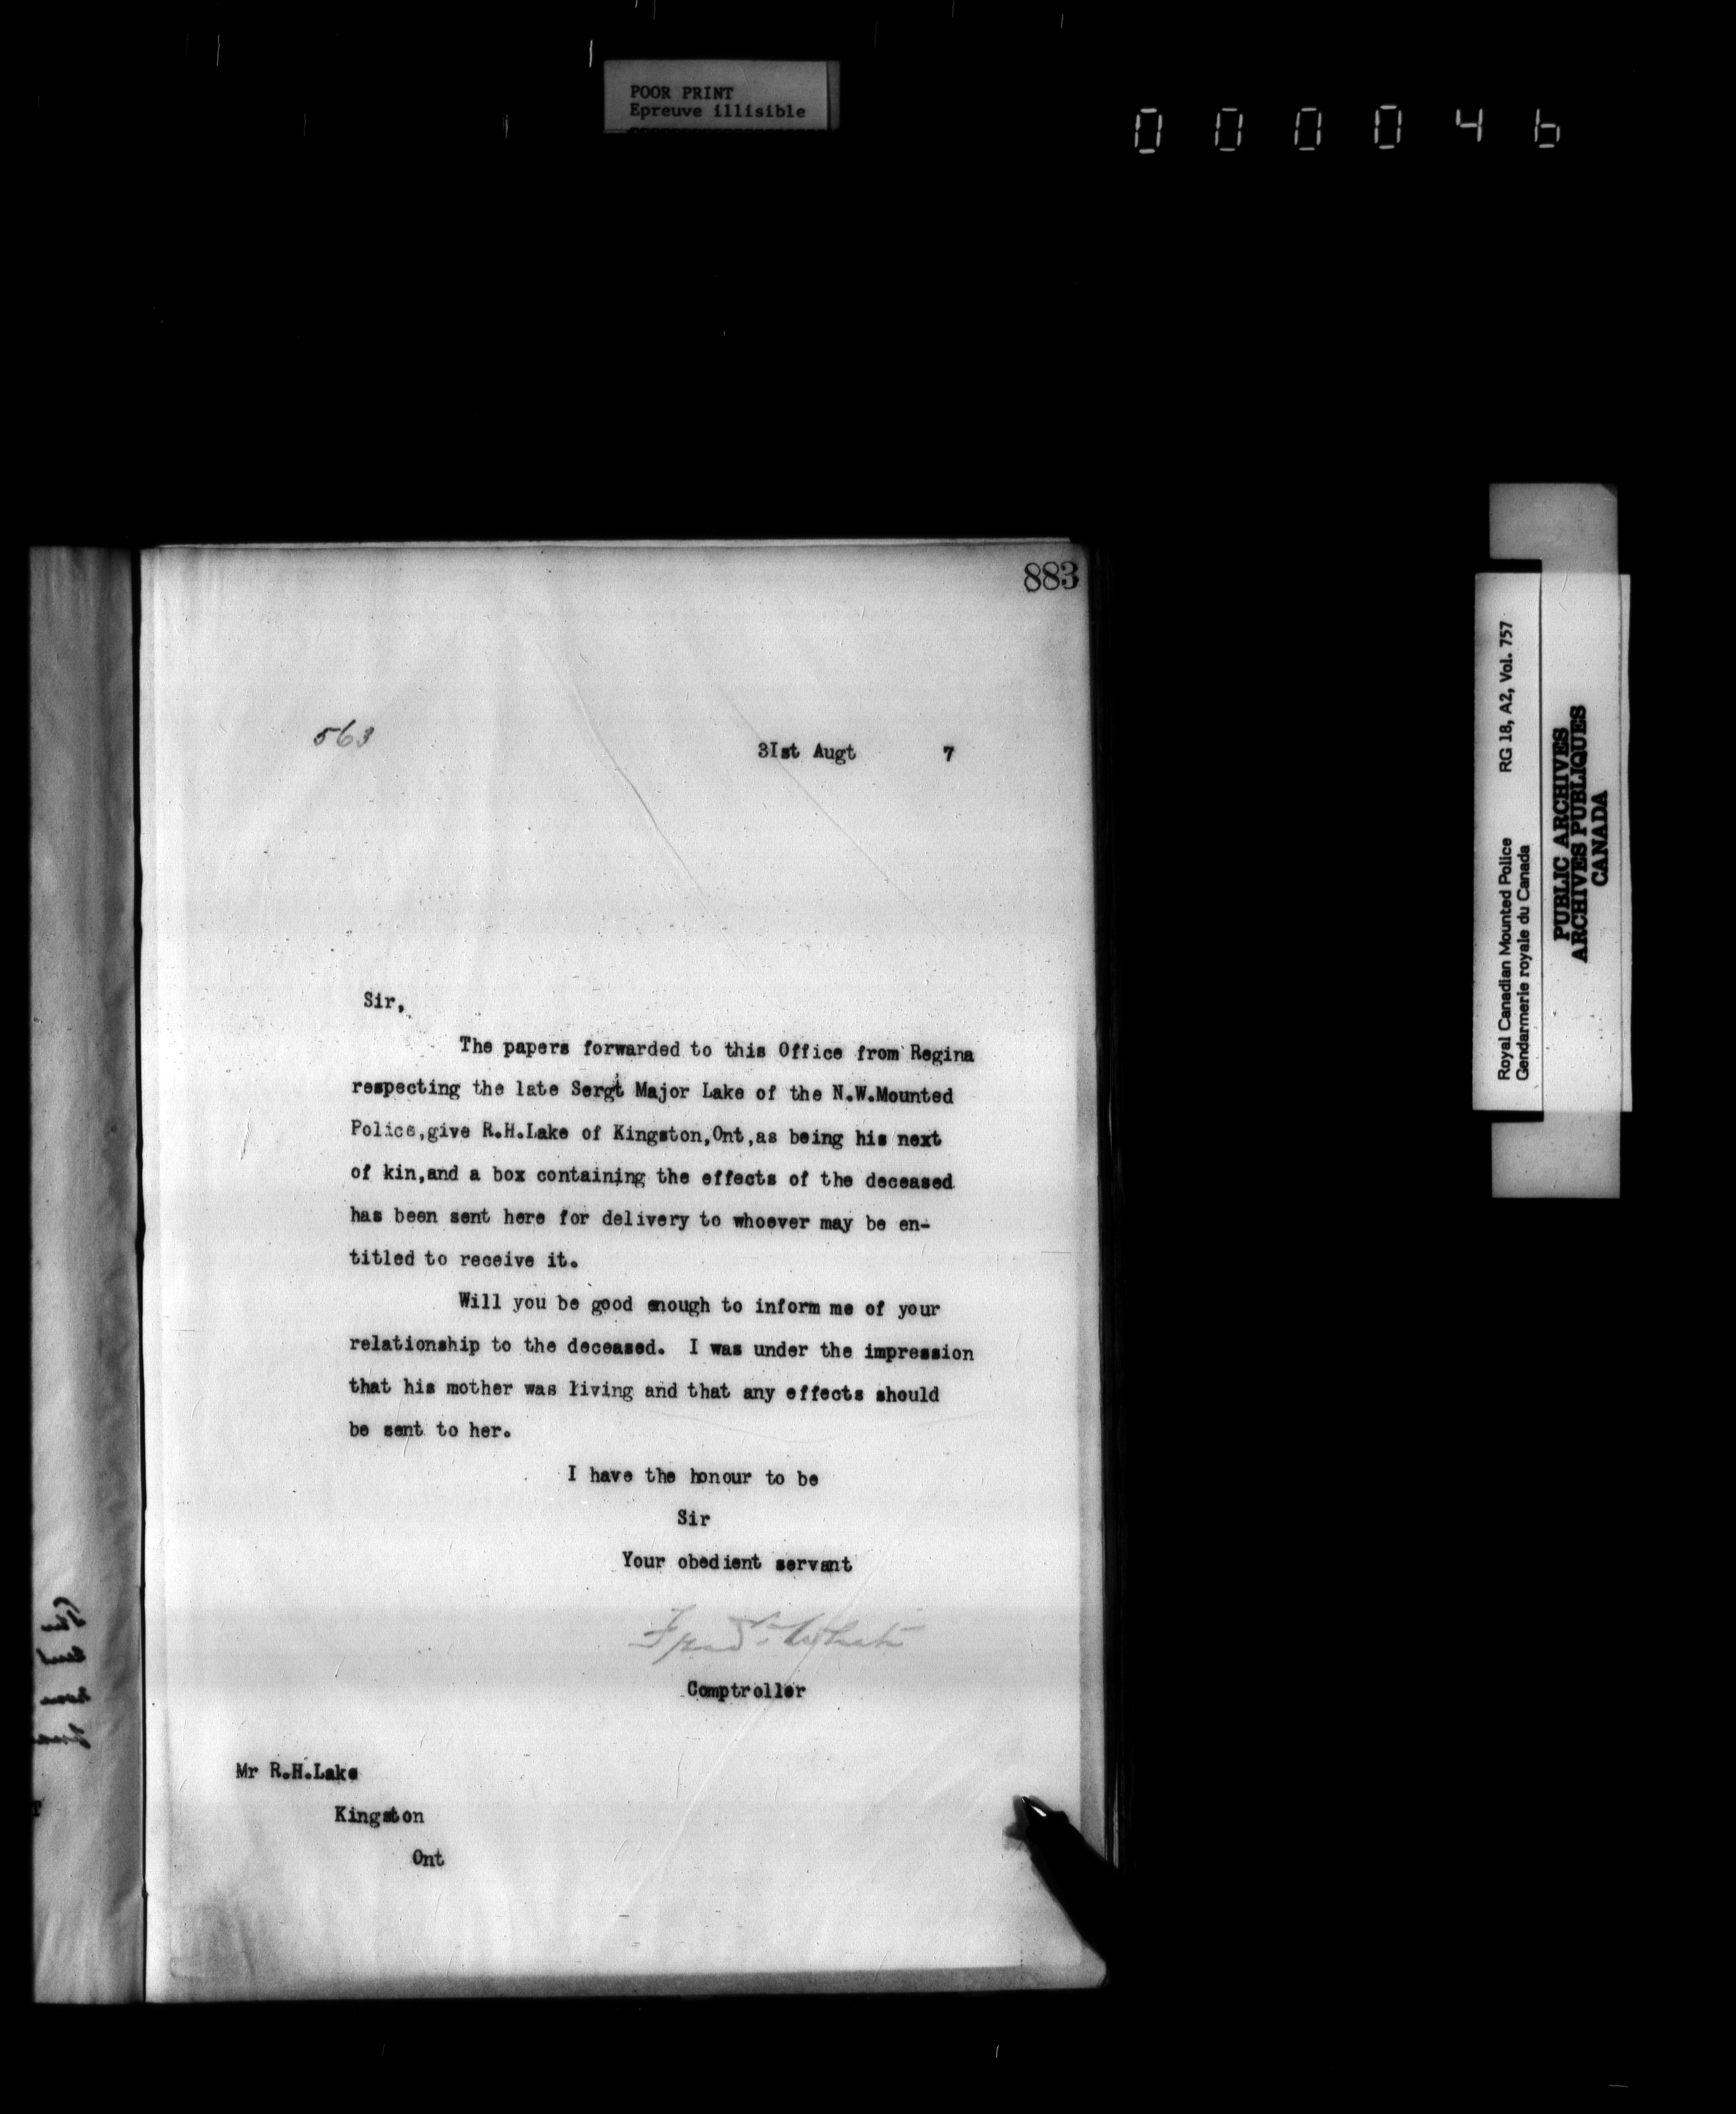 POOR PRINT
Epreuve illisible
000046
883
563
3Ist Augt 7
Sir,
The papers forwarded to this Office from Regina
respecting the late Sergt Major Lake of the N.W.Mounted
Police,give R.H.Lake of Kingston,Ont,as being his next
of kin,and a box containing the effects of the deceased
has been sent here for delivery to whoever may be en-
titled to receive it.
Will you be good enough to inform me of your
relationship to the deceased. I was under the impression
that his mother was living and that any effects should
be sent to her.
I have the honour to be
Sir
Your obedient servant
Fred White
Comptroller
Mr R.H.Lake
Kingston
Ont
Royal Canadian Mounted Police RG 18, A2, Vol. 757
Gendarmerie royale du Canada
PUBLIC ARCHIVES
ARCHIVES PUBLIQUES
CANADA